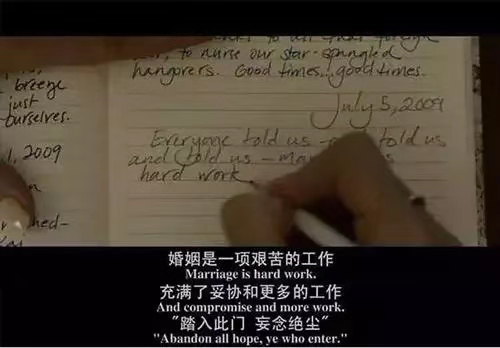 to all that foreign
to nurse our star-spangled
hangovers. Good times...good times.
breeze
just
ourselves.
July 5, 2009
Everyone told us - told us
, 2009
and told us -
hard work
婚姻是一项艰苦的工作
Marriage is hard work.
充满了妥协和更多的工作
And compromise and more work.
"踏入此门 妄念绝尘"
"Abandon all hope, ye who enter."